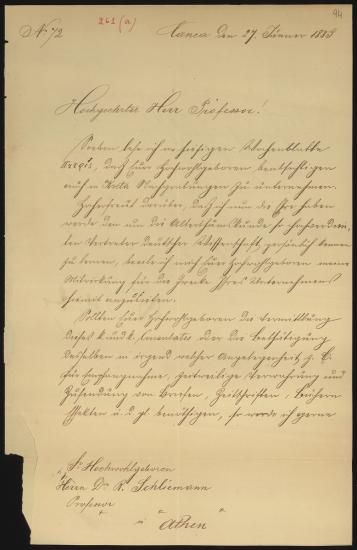 No 72
261 (a)
94
Canea den 27. Jänner 1883
Hochgeehrter Herr Professor!
Soeben lese ich im hiesigen Wochenblatte
, daß Euer Hochwohlgeboren beabsichtigen
auch in Kreta Nachgrabungen zu unternehmen.
Hocherfreut darüber, daß ich nun die Ehre haben
werde den um die Alterthumskunde so hochverdien-
ten Vertreter deutscher Wissenschaft persönlich kennen
zu lernen, beeile ich mich Euer Hochwohlgeboren meine
Mitwirkung für die Zwecke Ihres Unternehmens
hiemit anzubieten.
Sollten Euer Hochwohlgeboren die Vermittlung
dieses k. und k. Consulates oder die Bethätigung
desselben in irgend welcher Angelegenheit z. B.
für Empfangnahme, zeitweilige Verwahrung und
Zusendung von Briefen, Zeitschriften, Büchern
u. d. gl. benöthigen, so werde ich gerne
Sr Hochwohlgeboren
Herrn Dr. R. Schliemann
Professor
in Athen